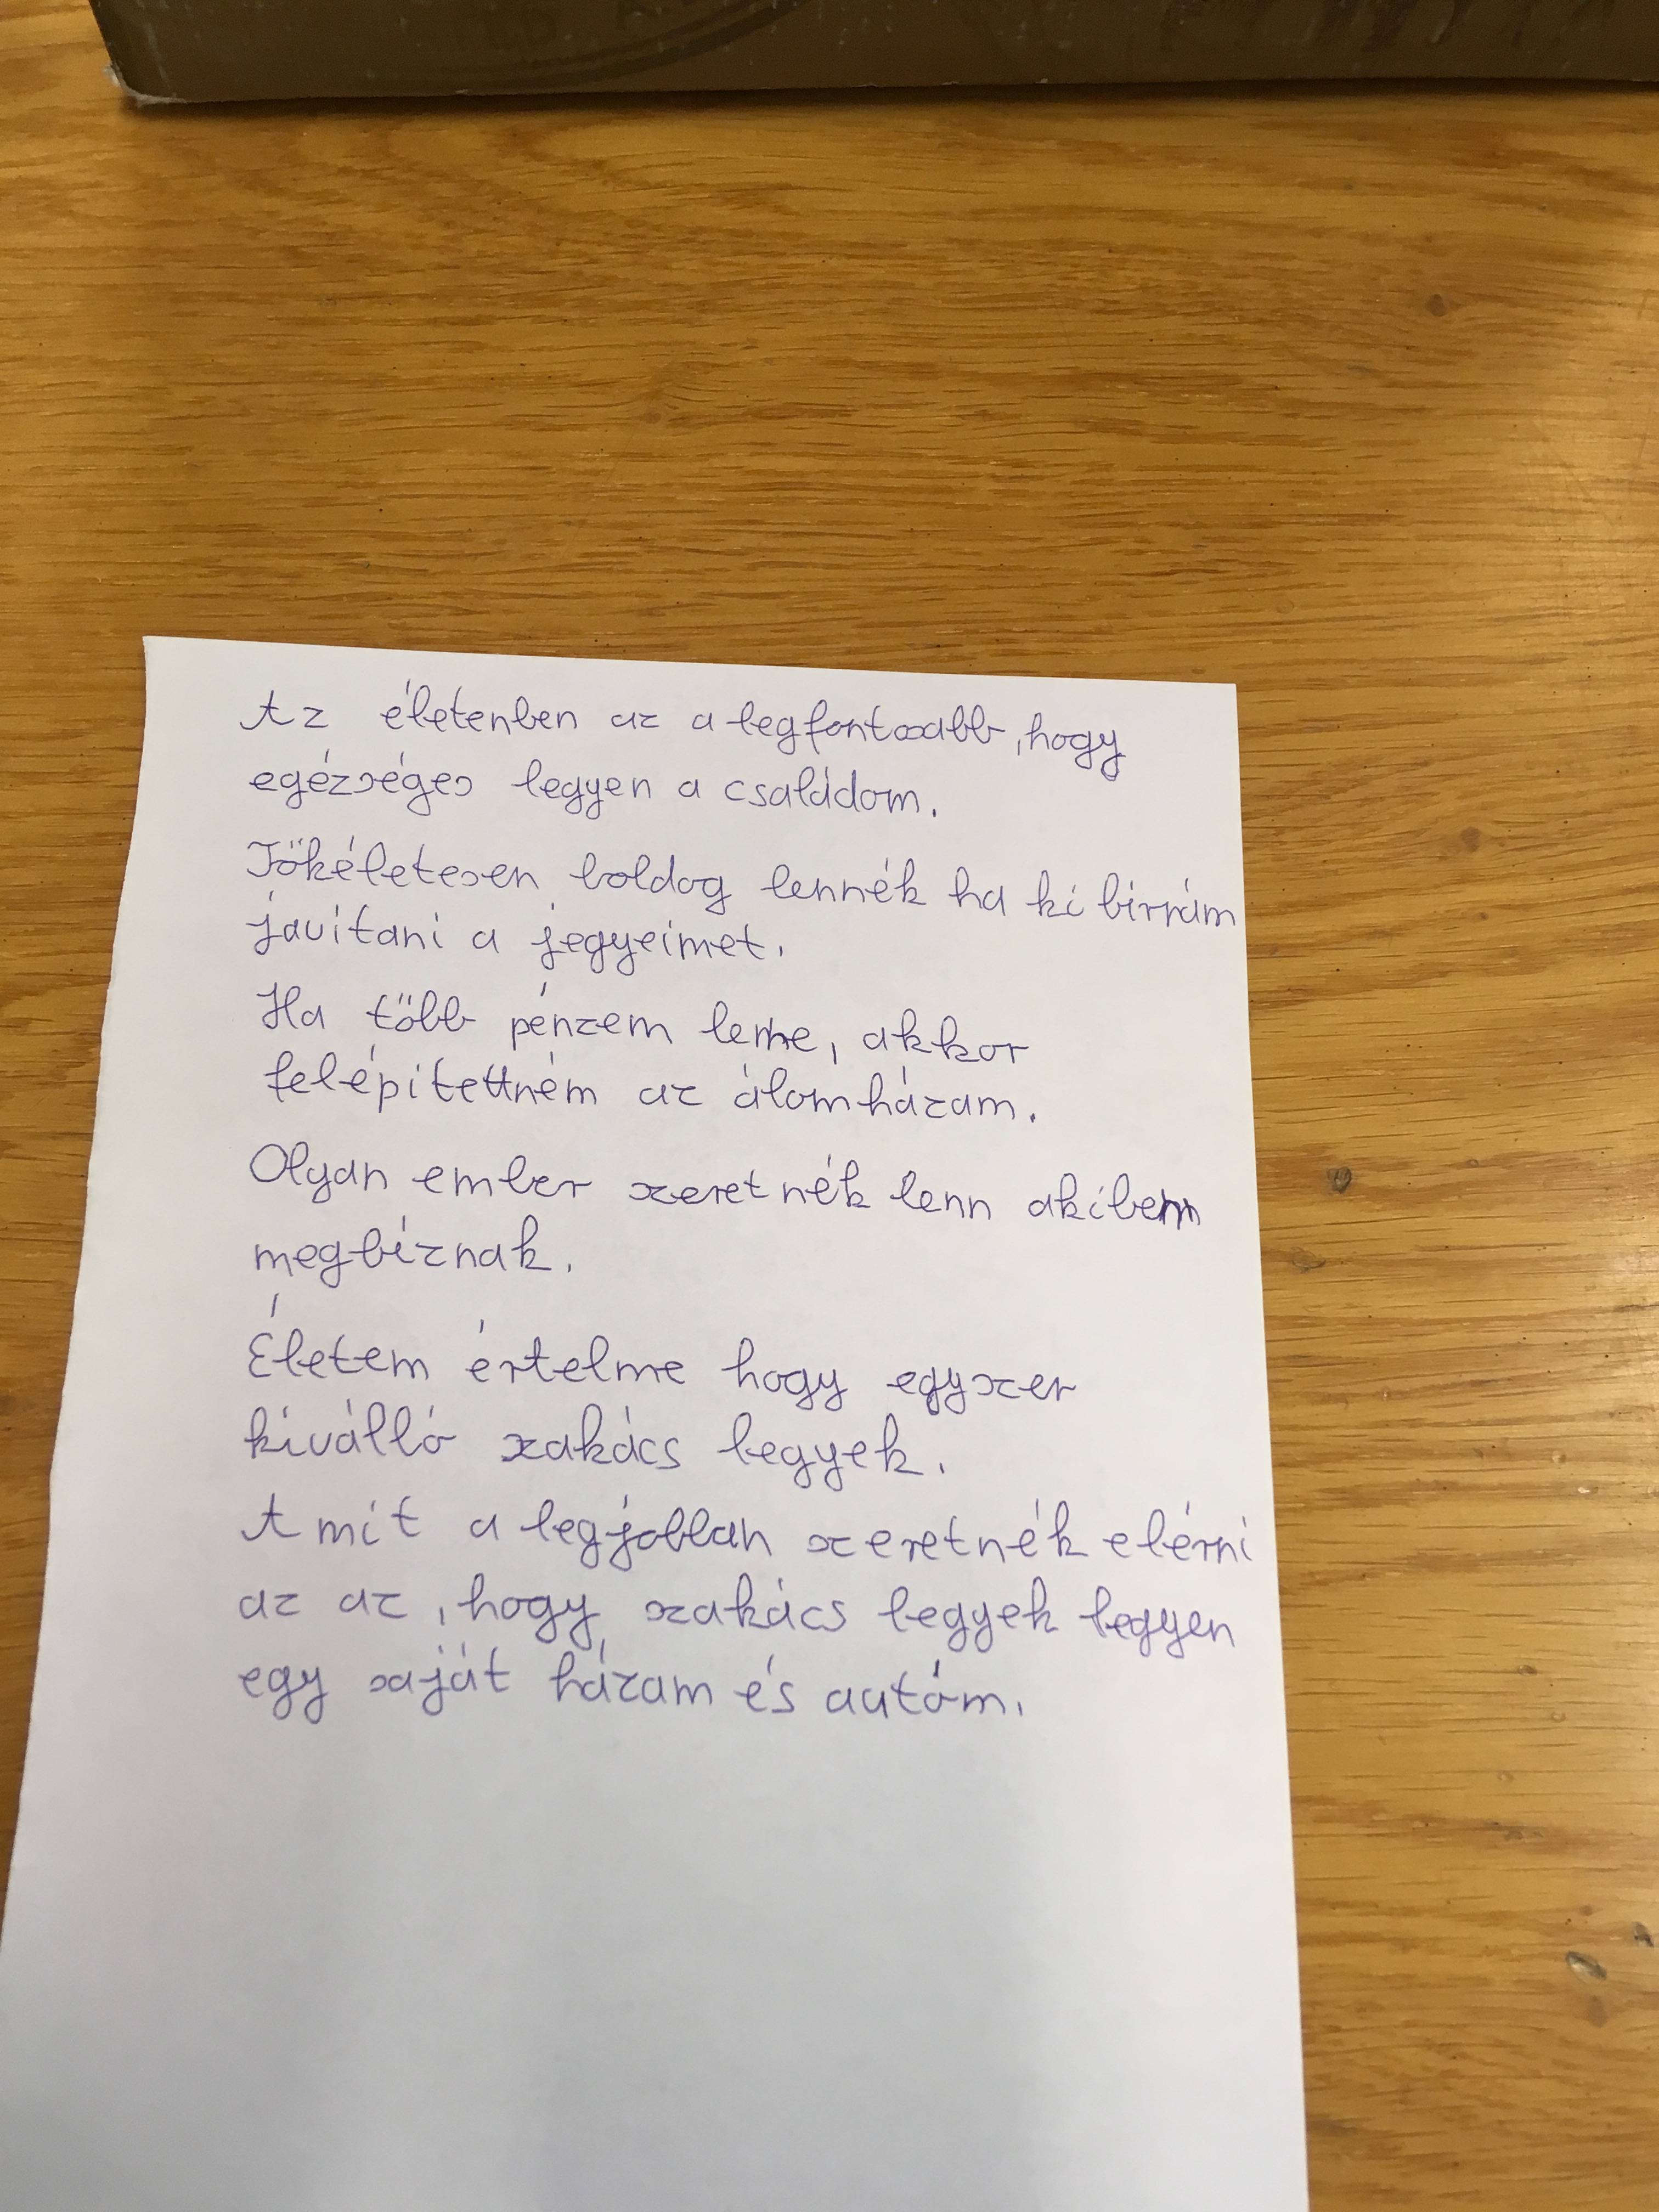 Az életenben az a legfontosabb, hogy
egézséges legyen a családom.
Tökéletesen boldog lennék ha ki birnám
javítani a jegyeimet.
Ha több pénzem lenne, akkor
felépítettném az álomházam.
Olyan ember szeretnék lenn akiben
megbíznak.
Életem értelme hogy egyszer
kiválló szakács legyek.
Amit a legjobban szeretnék elérni
az az, hogy szakács legyek legyen
egy saját házam és autóm.